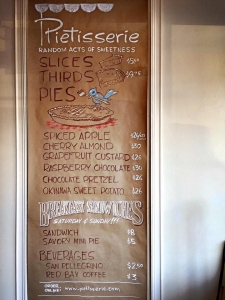 Pietisserie
RANDOM ACTS OF SWEETNESS
SLICES
THIRDS
PIES
SPICED APPLE
CHERRY ALMOND $30
GRAPEFRUIT CUSTARD $26
RASPBERRY CHOCOLATE $30
CHOCOLATE PRETZEL $26
OKINAWA SWEET POTATO $26
BREAKFAST SANDWICHES
SATURDAY & SUNDAY
SANDWICH $8
SAVORY MINI PIE $5
BEVERAGES
SAN PELLEGRINO $2.50
RED BAY COFFEE $3
www.pietisserie.com